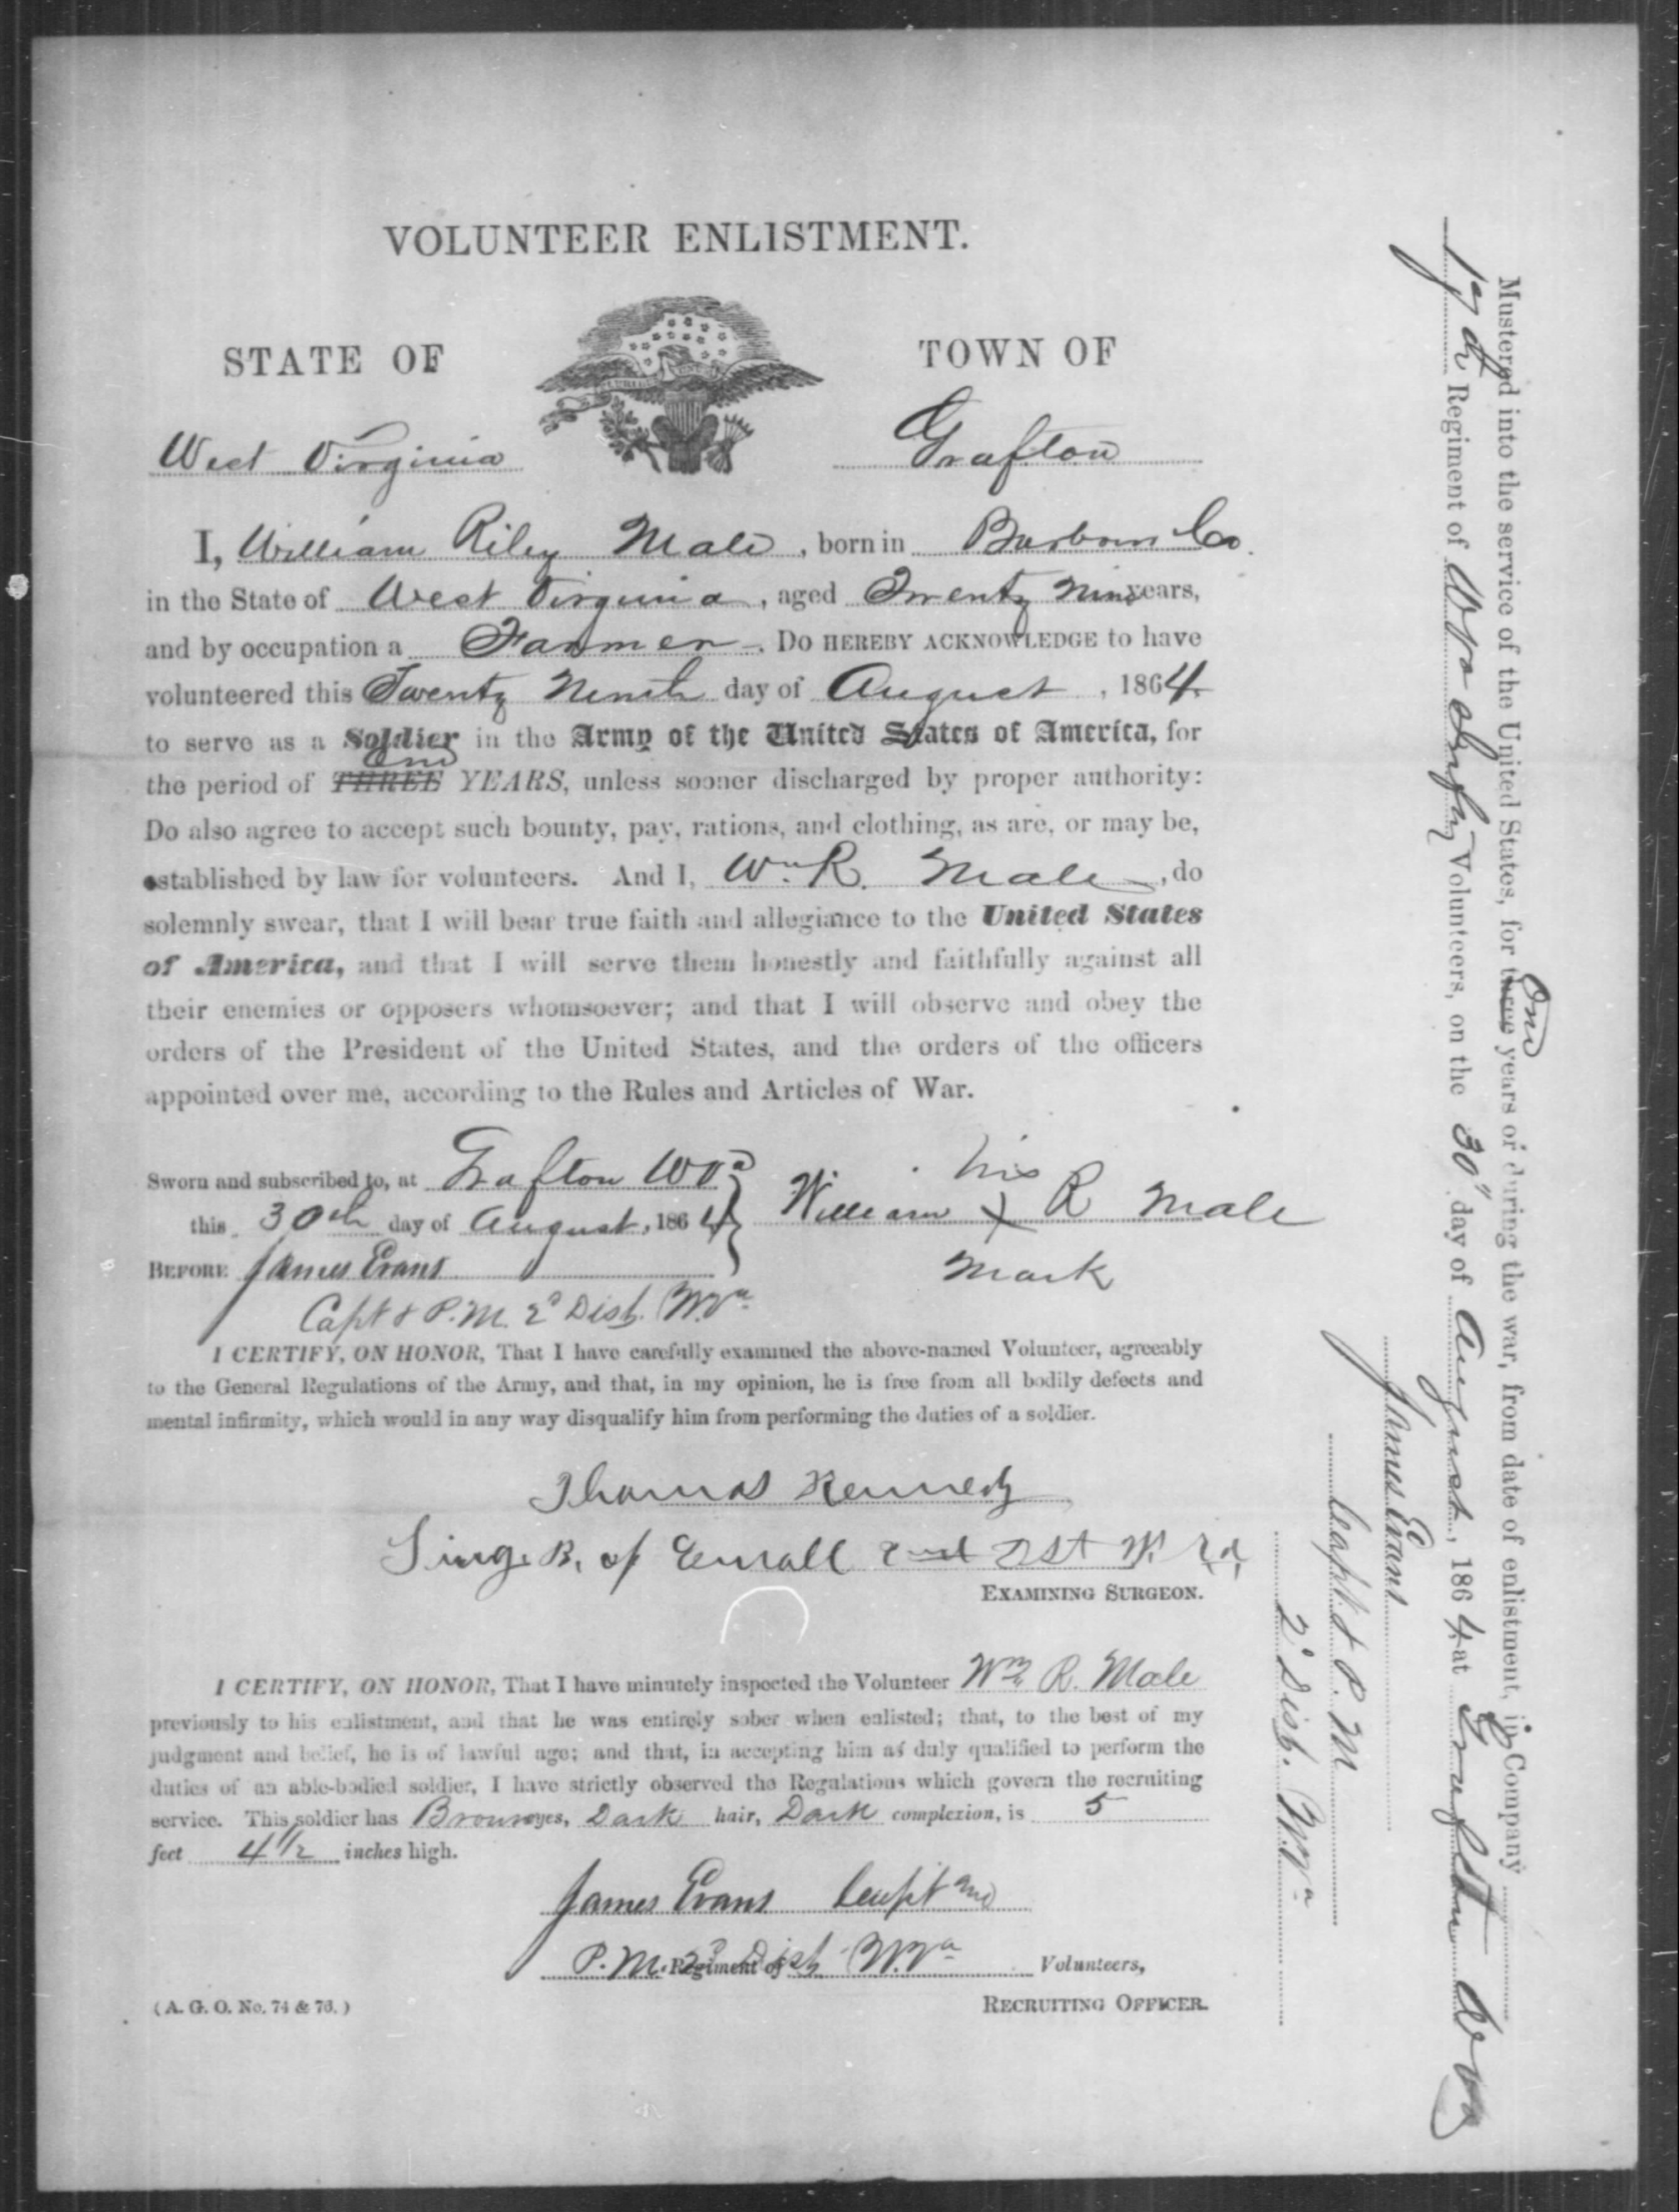 VOLUNTEER ENLISTMENT.
STATE OF
TOWN OF
West Virginia
Grafton
I, William Riley Male, born in Barbour Co.
in the State of West Virginia, aged Twenty Nine years,
and by occupation a Farmer. Do HEREBY ACKNOWLEDGE to have
volunteered this Twenty Ninth day of August, 1864.
to serve as a Soldier in the Army of the United States of America, for
One
the period of THREE YEARS, unless sooner discharged by proper authority:
Do also agree to accept such bounty, pay, rations, and clothing, as are, or may be,
established by law for volunteers. And I, Wm. R. Male, do
solemnly swear, that I will bear true faith and allegiance to the United States
of America, and that I will serve them honestly and faithfully against all
their enemies or opposers whomsoever; and that I will observe and obey the
orders of the President of the United States, and the orders of the officers
appointed over me, according to the Rules and Articles of War.
Sworn and subscribed to, at Grafton W Va
this 30th day of August, 1864
his
William X R Male
mark
BEFORE James Evans
Capt & P.M. 2d Dist. W.Va
I CERTIFY, ON HONOR, That I have carefully examined the above-named Volunteer, agreeably
to the General Regulations of the Army, and that, in my opinion, he is free from all bodily defects and
mental infirmity, which would in any way disqualify him from performing the duties of a soldier.
Thomas Kennedy
Surg. B. of Enroll 2nd Dist W. Va.
EXAMINING SURGEON.
I CERTIFY, ON HONOR, That I have minutely inspected the Volunteer Wm. R. Male
previously to his enlistment, and that he was entirely sober when enlisted; that, to the best of my
judgment and belief, he is of lawful age; and that, in accepting him as duly qualified to perform the
duties of an able-bodied soldier, I have strictly observed the Regulations which govern the recruiting
service. This soldier has Brown eyes, Dark hair, Dark complexion, is 5
feet 4 1/2 inches high.
James Evans Capt and
P.M. 2d Dist W.Va Regiment of Volunteers,
RECRUITING OFFICER.
(A. G. O. No. 74 & 76.)
Mustered into the service of the United States, for three One years or during the war, from date of enlistment, in Company
17th Regiment of W Va Infty Volunteers, on the 30" day of August, 1864 at Grafton W Va
James Evans
Capt. & P. M
2d Dist. W.Va